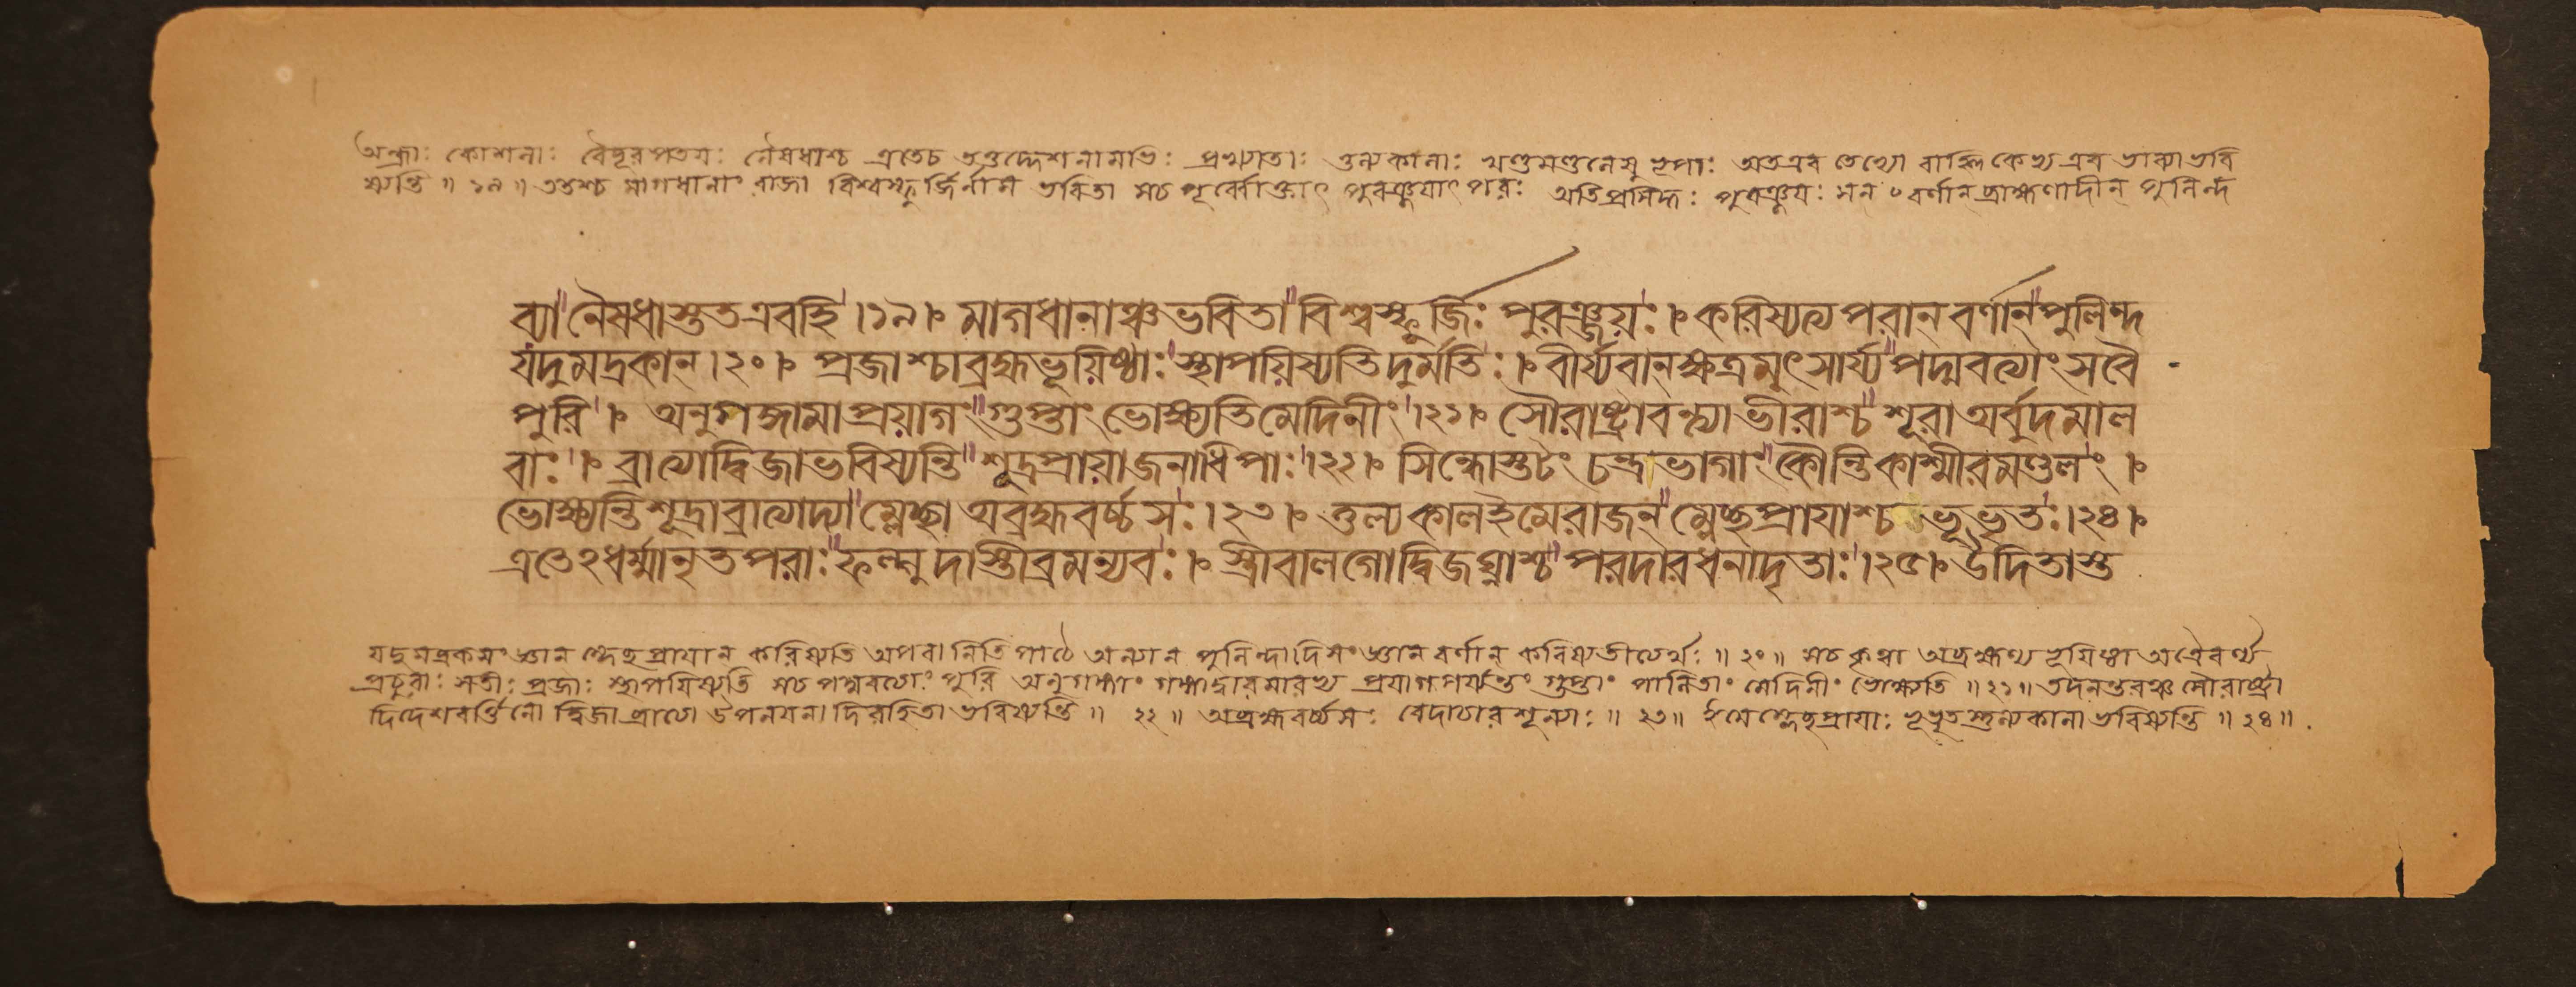 অন্ধ্রাঃ কোশলাঃ বৈদূরপতয়ঃ নৈষধাশ্চ এতেচ তত্তদ্দেশনামভিঃ প্রখ্যাতাঃ তুল্যকালাঃ খণ্ডমণ্ডলেষু ভূপাঃ অতএব তেভ্যো বাহ্লিকেভ্য এব ভাব্যা ভবি
ষ্যন্তি ॥ ১৯ ॥ ততশ্চ মাগধানাং রাজা বিশ্বস্ফূর্জির্নাম ভবিতা সচ পূর্ব্বোক্তাৎ পুরঞ্জয়াৎ পরঃ অতিপ্রসিদ্ধঃ পুরঞ্জয়ঃ বর্ণান ব্রাহ্মণাদীন পুলিন্দ
ব্যা নৈষধাস্তুতএবহি ।১৯। মাগধানাঞ্চভবিতা বিশ্বস্ফূর্জিঃ পুরঞ্জয়ঃ। করিষ্যত্যপরান বর্ণান পুলিন্দ
যদুমদ্রকান।২০। প্রজাশ্চাব্রহ্মভূয়িষ্ঠাঃ স্থাপয়িষ্যতিদুর্মতিঃ। বীর্য্যবানক্ষত্রমুৎসার্য্য পদ্মবত্যাংসবৈ
পুরি। অনুগঙ্গামাপ্রয়াগং গুপ্তাং ভোক্ষ্যতিমেদিনীং।২১। সৌরাষ্ট্রাবন্ত্যাভীরাশ্চ শূরাঅর্বুদমাল
বাঃ। ব্রাত্যাদ্বিজাভবিষ্যন্তি শূদ্রপ্রায়াজনাধিপাঃ।২২। সিন্ধোস্তটং চন্দ্রভাগাং কৌন্তিকাশ্মীরমণ্ডলং।
ভোক্ষ্যন্তিশূদ্রাব্রাত্যাদ্যা ম্লেচ্ছা অব্রহ্মবর্চ্চসঃ।২৩। তুল্যকালইমেরাজন্ ম্লেচ্ছপ্রায়াশ্চ ভূভৃতঃ।২৪।
এতেঽধর্ম্মানৃতপরাঃ ফল্গুদাস্তীব্রমন্যবঃ। স্ত্রীবালগোদ্বিজঘ্নাশ্চ পরদারধনাদৃতাঃ।২৫। উদিতাস্ত
যদুমদ্রকসংজ্ঞান ম্লেচ্ছপ্রায়ান করিষ্যতি অপরানিতিপাঠে অন্যান পুলিন্দাদিসংজ্ঞান বর্ণান করিষ্যতীত্যর্থঃ ॥ ২০ ॥ সচ কৃত্বা অব্রহ্মণ্য ভূয়িষ্ঠা অত্রৈবর্ণ্য
প্রচুরাঃ সতীঃ প্রজাঃ স্থাপয়িষ্যতি সচ পদ্মবত্যাং পুরি অনুগঙ্গাং গঙ্গাদ্বারমারভ্য প্রয়াগপর্য্যন্তং গুপ্তাং পালিতাং মেদিনীং ভোক্ষ্যতি ॥ ২১ ॥ তদনন্তরঞ্চ সৌরাষ্ট্রা
দিদেশবর্ত্তিনো দ্বিজা ব্রাত্যা উপনয়নাদিরহিতা ভবিষ্যন্তি ॥ ২২ ॥ অব্রহ্মবর্চ্চসঃ বেদাচারশূন্যাঃ ॥ ২৩ ॥ ইমে ম্লেচ্ছপ্রায়াঃ ভূভৃতস্তুল্যকালা ভবিষ্যন্তি ॥ ২৪ ॥